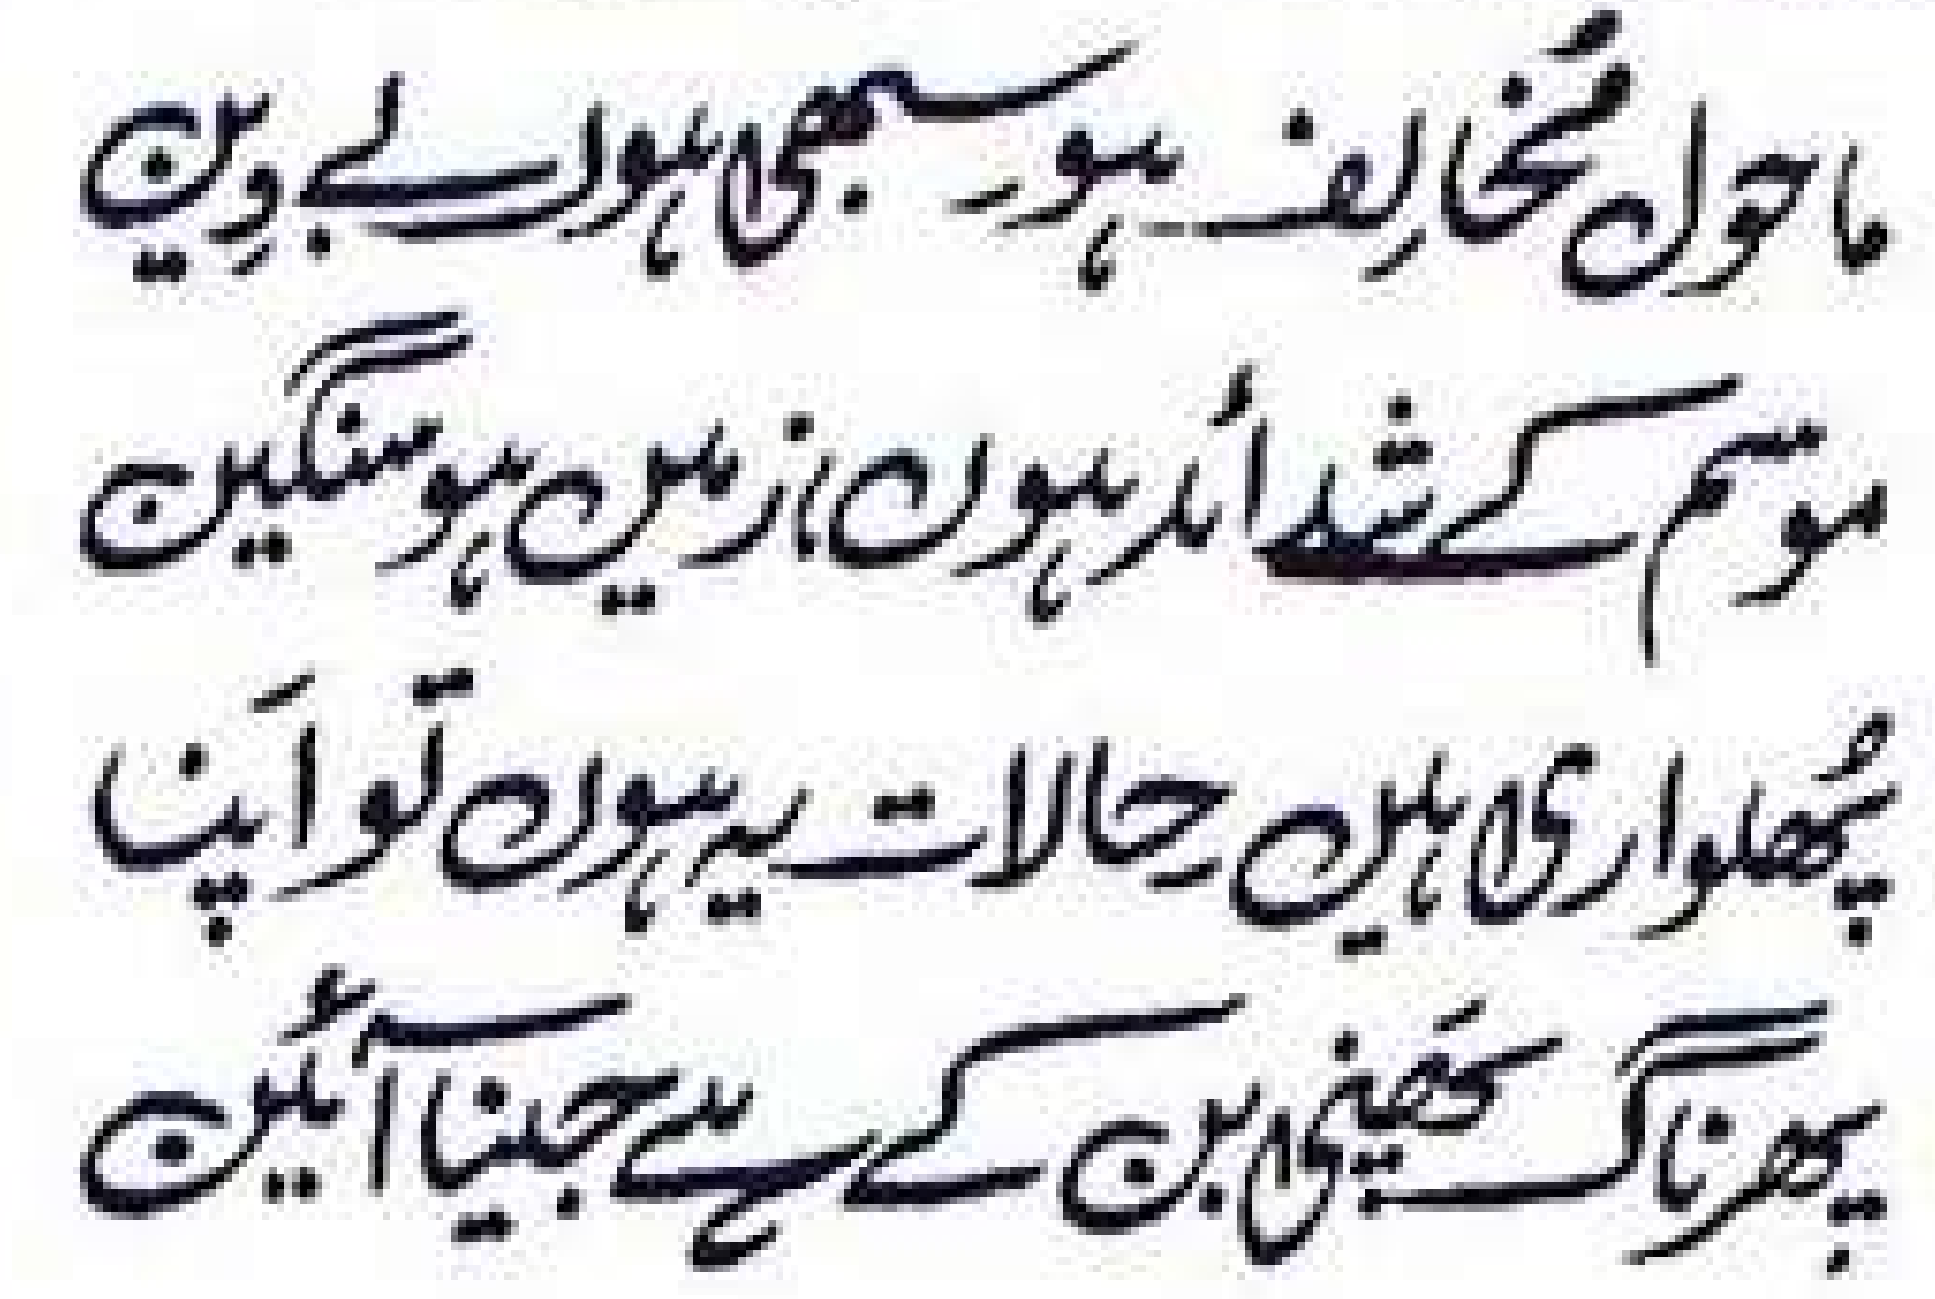 ماحول مُخالِف ہو سبھی ہوں بے دین
موسم کے شدائد ہوں زمیں ہو سنگین
پُھلواری ہیں حالات یہ ہوں تو اپنا
پھر ناگ پھنی بن کے ہے جینا آئین